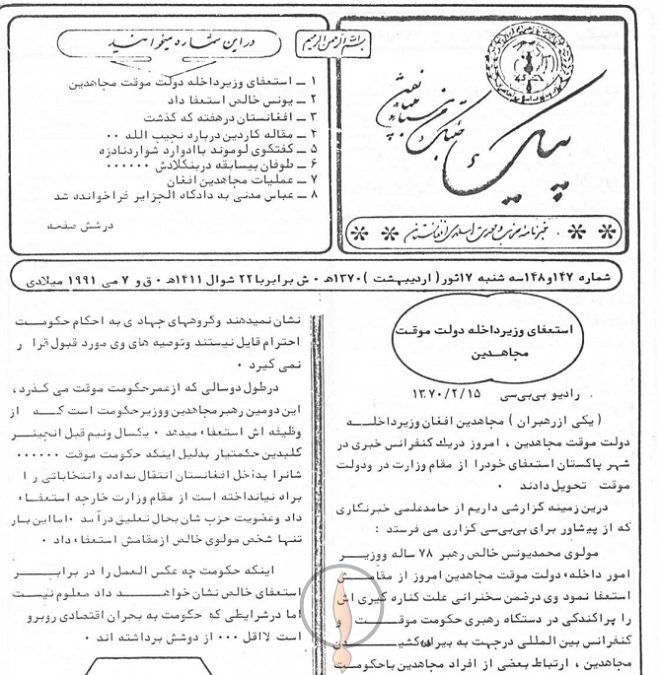 بسم الله الرحمن الرحیم
پیک
خبرنامه حزب وحدت اسلامی افغانستان
دراین شماره میخوانید
۱ ــ استعفای وزیرداخله دولت موقت مجاهدین
۲ ــ یونس خالص استعفا داد
۳ ــ افغانستان درهفته که گذشت
۴ ــ مقاله کاردین درباره نجیب الله ۰۰
۵ ــ گفتگوی لوموند باادوارد شواردنادزه
۶ ــ طوفان بیسابقه دربنگلادش ۰۰۰۰۰۰
۷ ــ عملیات مجاهدین افغان
۸ ــ عباس مدنی به دادگاه الجزایر فراخوانده شد
درشش صفحه
شماره ۱۴۷و۱۴۸سه شنبه ۱۷ثور( اردیبهشت )۱۳۷۰هـ ۰ ش برابربا۲۲ شوال ۱۴۱۱هـ ۰ ق و ۷ می ۱۹۹۱ میلادی
استعفای وزیرداخله دولت موقت
مجاهدین
۰ رادیو بی‌بی‌سی ۱۳۷۰/۲/۱۵
( یکی ازرهبران ) مجاهدین افغان وزیرداخلــه
دولت موقت مجاهدین ، امروز دریک کنفرانس خبری در
شهر پاکستان استعفای خودرا از مقام وزارت در ودولت
موقت تحویل دادند ۰
درین زمینه گزارشی داریم از حامدعلمی خبرنگاری
که از پیشاور برای بی‌بی‌سی گزاری می فرستد :
مولوی محمدیونس خالص رهبر ۷۸ ساله ووزیــر
امور داخله دولت موقت مجاهدین امروز از مقامــش
استعفا نمود وی درضمن سخنرانی علت کناره گیری اش
را پراکندکی در دستگاه رهبری حکومت موقــت و
کنفرانس بین المللی درجهت به بیراه کشیــدن
مجاهدین ، ارتباط بعضی از افراد مجاهدین باحکومــت
نشان نمیدهند وگروههای جهاد ی به احکام حکومــت
احترام قایل نیستند وتوصیه های وی مورد قبول قرا ر
نمی گیرد ۰
درطول دوسالی که ازعمرحکومت موقت می گـذرد ،
این دومین رهبرمجاهدین ووزیرحکومت است کــه از
وظیفه اش استعفاء میدهد ۰ یکسال ونیم قبل انجینــر
گلبدین حکمتیار بدلیل اینکه حکومت موقت ۰۰۰۰۰۰
شانرا بداخل افغانستان انتقال نداده وانتخاباتی را
براه نیانداخته است از مقام وزارت خارجه استعفــاء
داد وعضویت حزب شان بحال تعلیق درآمد ۰ امااین بـار
تنها شخص مولوی خالص ازمقامش استعفاء داد ۰
اینکه حکومت چه عکس العمل را در برابــر
استعفای خالص نشان خواهــد داد معلوم نیسـت
اما درشرایطی که حکومت به بحران اقتصادی روبرو
است لااقل ۰۰۰ از دوشش برداشته اند ۰